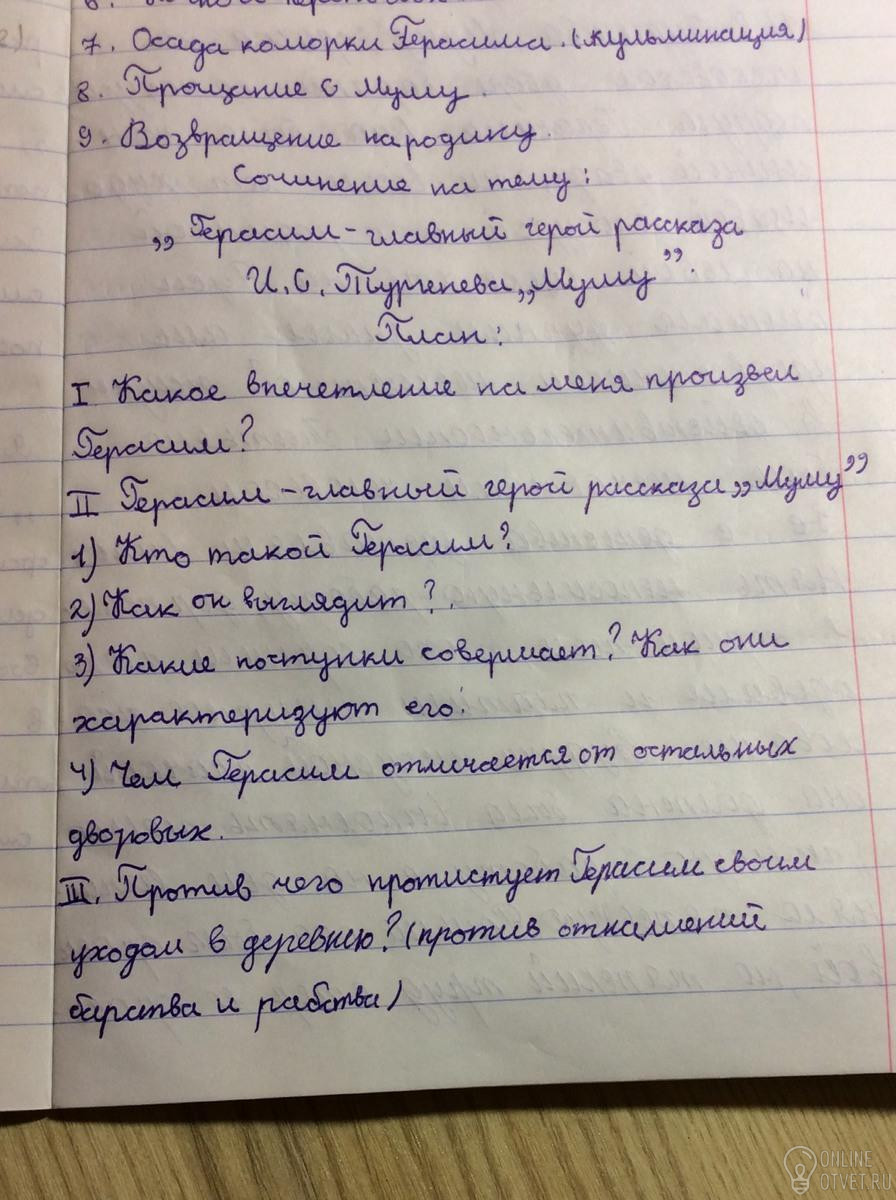 7. Осада коморки Герасима. (кульминация)
8. Прощание с Муму.
9. Возвращение на родину.
Сочинение на тему:
„Герасим – главный герой рассказа
И. С. Тургенева „Муму”.
План:
I Какое впечетление на меня произвел
Герасим?
II Герасим – главный герой рассказа „Муму”
1) Кто такой Герасим?
2) Как он выглядит?.
3) Какие поступки совершает? Как они
характеризуют его?
4) Чем Герасим отличается от остальных
дворовых.
III. Против чего протистует Герасим своим
уходом в деревню? (против отнашений
барства и рабства)
ONLINE
OTVET.RU